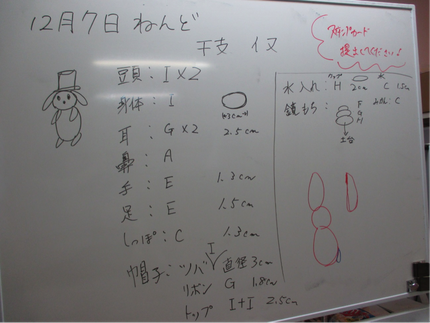 12月7日 ねんど
干支 戌
スタンプカード
提出してください!
頭:I×2
身体:I
耳:G×2 2.5cm
鼻:A
手:E 1.3cm
足:E 1.5cm
しっぽ:C 1.3cm
I
帽子:ツバ 直径3cm
リボン G 1.8cm
トップ I+I 2.5cm
水入れ:H 2cm C 1.5cm
鏡もち:F
G
H
みかん:C
土台